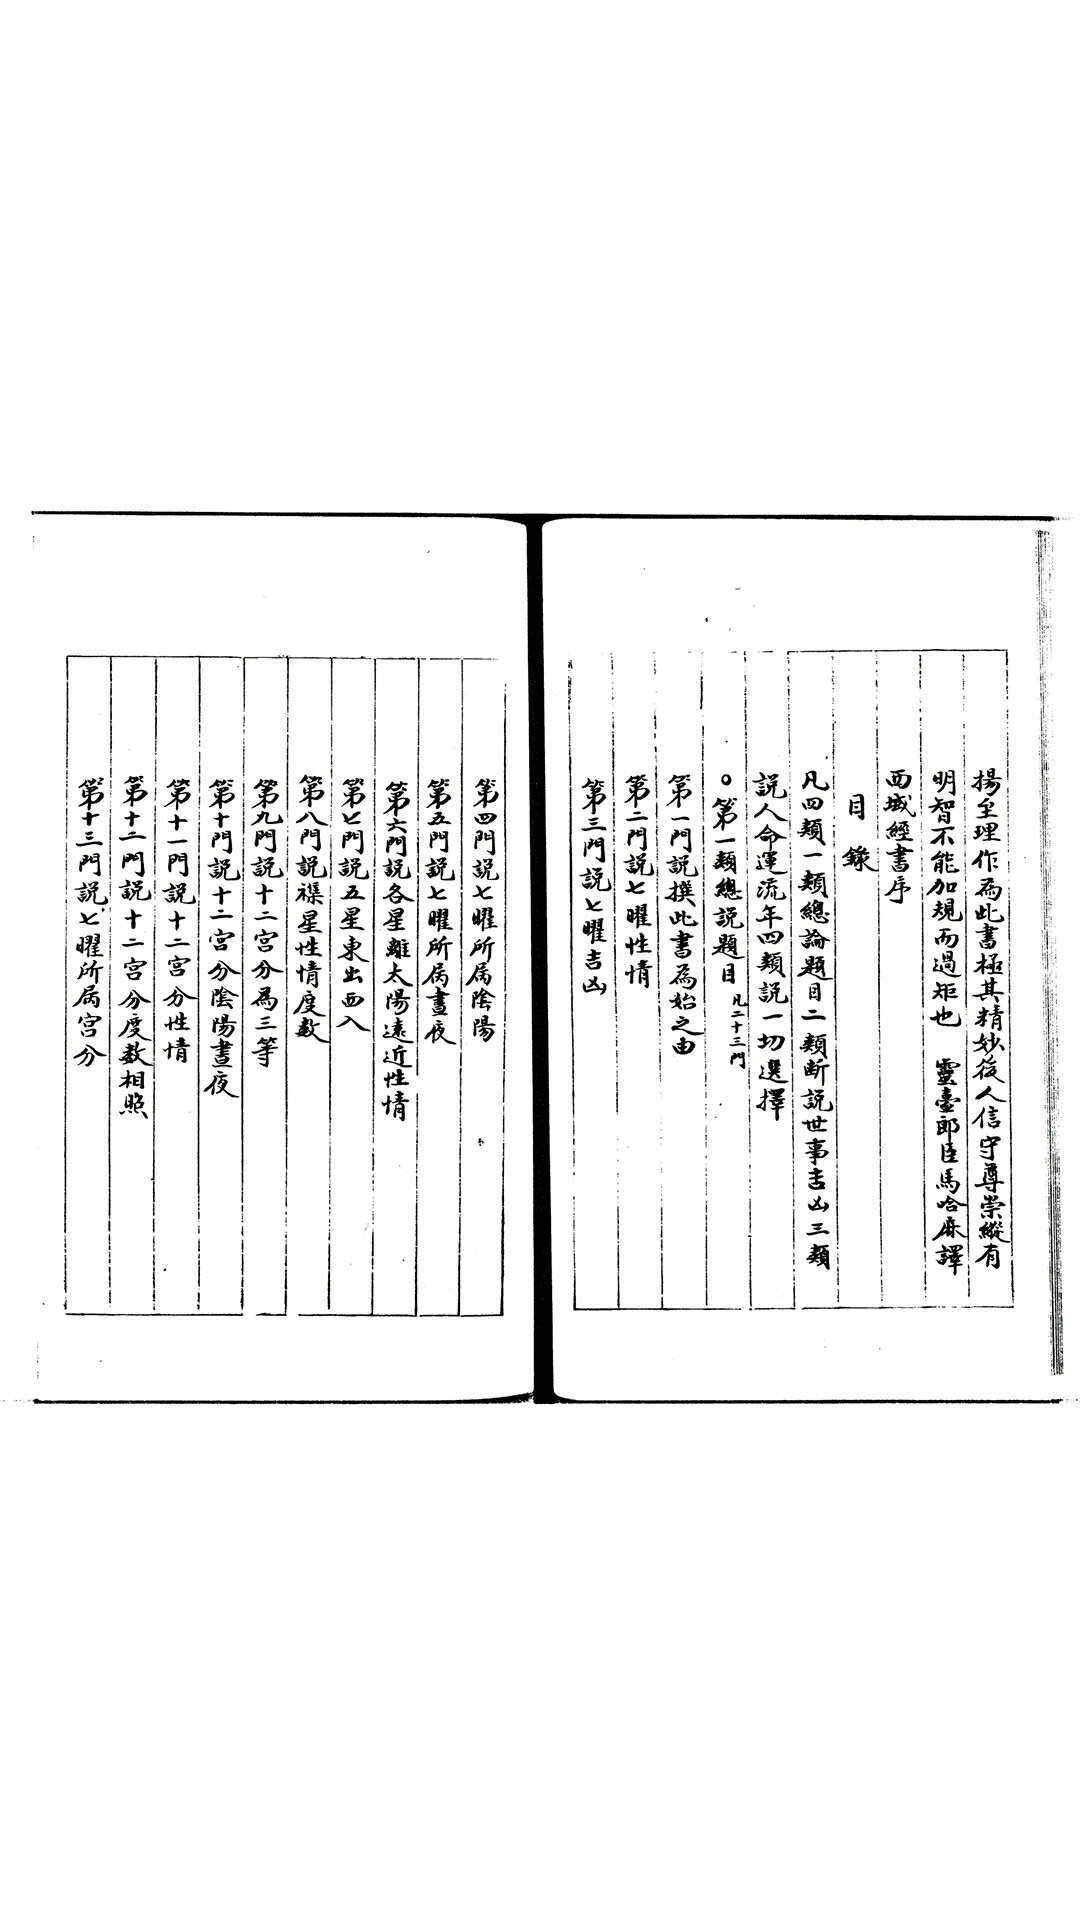 揚至理作為此書極其精妙後人信守尊崇縱有
明智不能加規而過矩也　靈臺郎臣馬哈麻譯
西域經書序
目錄
凡四類一類總論題目二類斷説世事吉凶三類
説人命運流年四類説一切選擇
○第一類總説題目 凡二十三門
第一門説撰此書為始之由
第二門説七曜性情
第三門説七曜吉凶
第四門説七曜所属陰陽
第五門説七曜所属晝夜
第六門説各星離太陽遠近性情
第七門説五星東出西入
第八門説襍星性情度數
第九門説十二宮分為三等
第十門説十二宮分陰陽晝夜
第十一門説十二宮分性情
第十二門説十二宮分度數相照
第十三門説七曜所属宮分